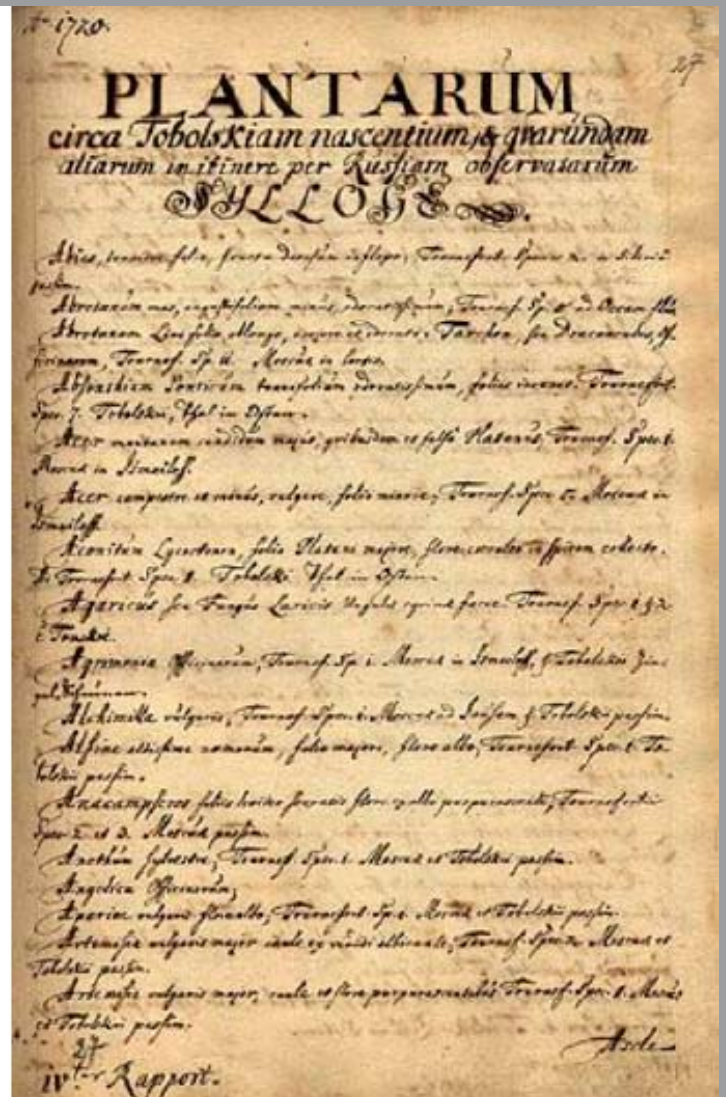 Aō 1720.
27
PLANTARUM
circa Tobolskiam nascentium, & qvarundam
aliarum in itinere per Russiam observatarum
SYLLOGE
Abies, tenuiore folio, fructu deorsum inflexo, Tournefort. Spec. 2. in Siberiâ
passim.
Abrotanum mas, angustifolium minus, Tournef. Sp. ad Occam
Abrotanum Lini folio, et odorato, Tarchon, seu Dracunculus,
Tournef. Sp. 11. Moscuæ in hortis.
Absinthium Ponticum tenuifolium, foliis incanis. Tournefort.
Spec. 7. Tobolskii,
Acer montanum candidum majus, qvibusdam et falsò Platanus, Tournef. Spec. 1.
Moscuæ in Ismailoff.
Acer campestre et minus, vulgare, folio minore, Tournef. Spec. 5. Moscuæ in
Ismailoff.
Aconitum Lycoctonon, folio Platani majore, flore cæruleo in spicam
Tournefort. Spec. 8. Tobolskii
Agaricus seu Fungus Laricis Tournef. Spec. 1
Agrimonia Officinarum, Tournef. Sp. 1. Moscuæ in Ismailoff, & Tobolskii
Alchimilla vulgaris, Tournef. Spec. 1. Moscuæ ad & Tobolskii passim.
Alsine altissima nemorum, folio majore, flore albo, Tournefort. Spec. 1. To-
bolskii passim.
Anacampseros flore purpurascente, Tournefortii
Spec. 2. et 3. Moscuæ passim.
Anethum sylvestre, Tournef. Spec. 1. Moscuæ et Tobolskii passim.
Angelica Officinarum,
Aparine vulgaris flore albo, Tournefort. Sp. 1. Moscuæ et Tobolskii passim.
Artemisia vulgaris major caule ex viridi albicante, Tournef. Spec. 2. Moscuæ et
Tobolskii passim.
Artemisia vulgaris major, caule et flore purpurascentibus Tournef. Spec. 1. Moscuæ
et Tobolskii passim.
Ascle-
27
IVter Rapport.